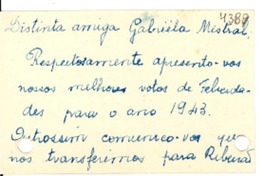 4388
Distinta amiga Gabriëla Mistral,
Respeitosamente apresento-vos
nossos melhores votos de felicida-
des para o ano 1943.
Outrossim comunico-vos que
nos transferimos para Ribeirão